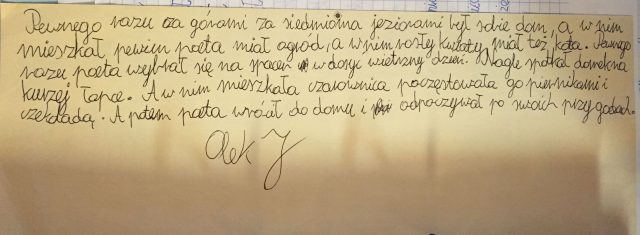 Pewnego razu za górami za siedmioma jeziorami był sobie dom, a w nim
mieszkał pewien poeta miał ogród, a w nim rosły kwiaty, miał też kota. Pewnego
razu poeta wybrał się na spacer w dosyc wietrzny dzień. Nagle spotkał domek na
kurzej łapce. A w nim mieszkała czarownica poczęstowała go piernikami i
czekoladą. A potem poeta wrócił do domu i odpoczywał po swoich przygodach.
Olek J